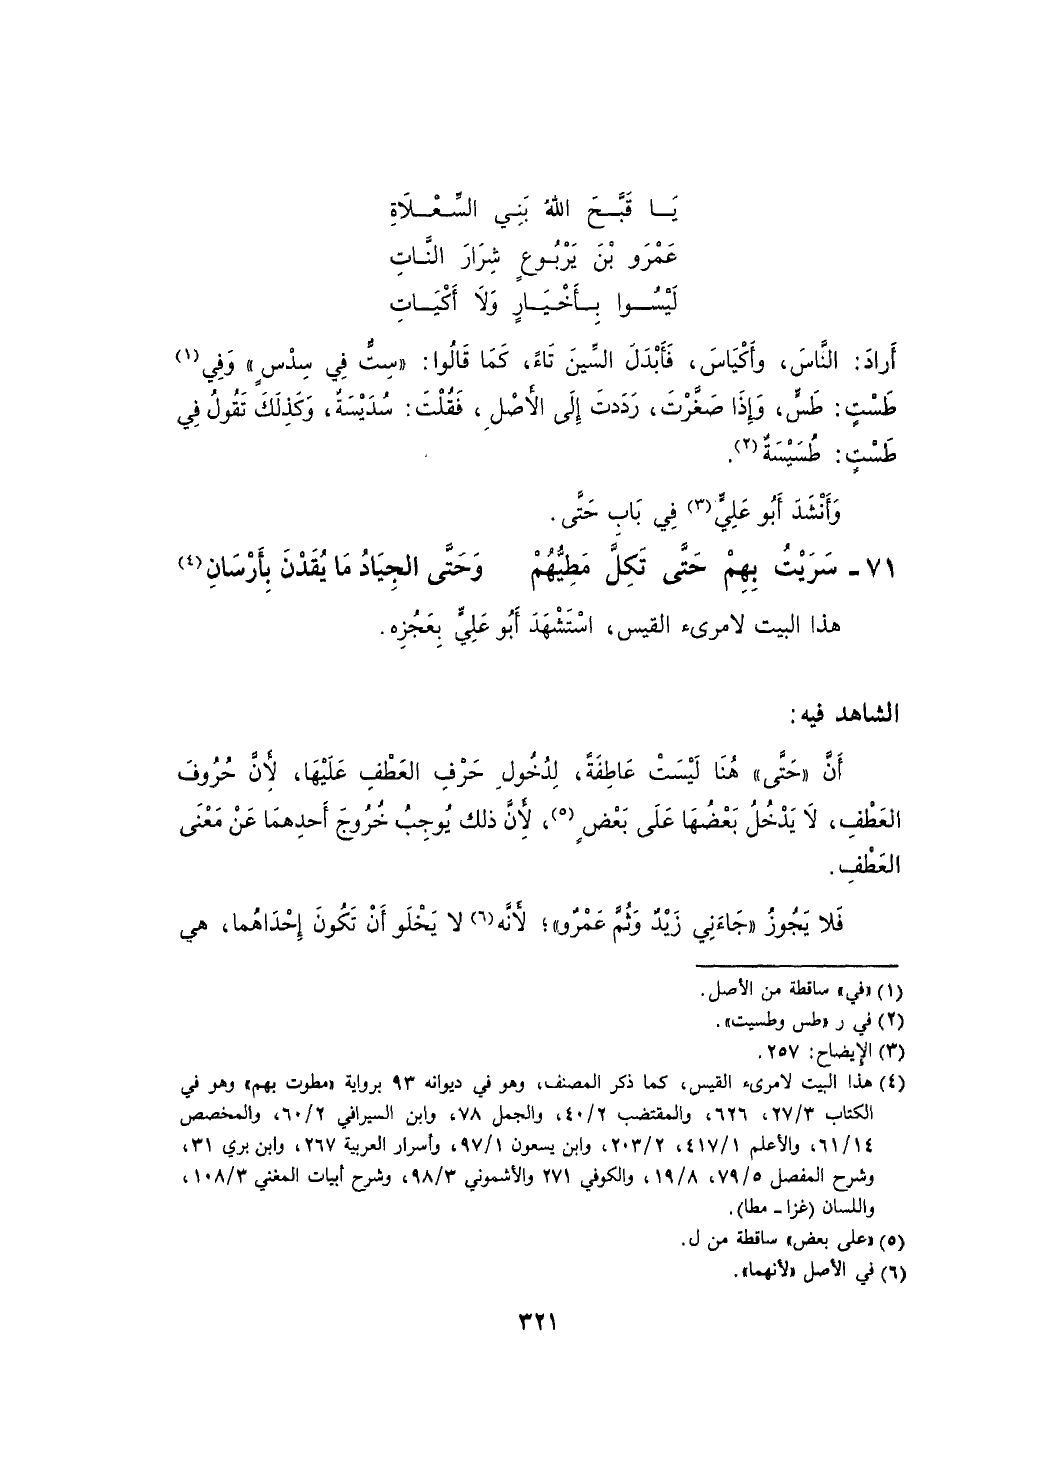 يَـا قَبَّـحَ اللهُ بَنِـي السِّـعْـلَاةِ
عَمْرَو بْنَ يَرْبُـوعٍ شِرَارَ النَّـاتِ
لَيْسُـوا بِـأَخْيَـارٍ وَلَا أَكْيَـاتِ
أَرادَ: النَّاسَ، وأَكْيَاسَ، فَأَبْدَلَ السِّينَ تَاءً، كَمَا قَالُوا: «سِتٌّ فِي سِدْسٍ» وَفِي(١)
طَسْتٍ: طَسٌّ، وَإِذَا صَغَّرْتَ، رَدَدتَ إِلَى الأَصْلِ، فَقُلْتَ: سُدَيْسَةٌ، وَكَذلِكَ تَقُولُ فِي
طَسْتٍ: طُسَيْسَةٌ(٢).
وَأَنْشَدَ أَبُو عَلِيٍّ(٣) فِي بَابِ حَتَّى.
٧١ ـ سَرَيْتُ بِهِمْ حَتَّى تَكِلَّ مَطِيُّهُمْ وَحَتَّى الجِيَادُ مَا يُقَدْنَ بِأَرْسَانِ(٤)
هذا البيت لامرىء القيس، اسْتَشْهَدَ أَبُو عَلِيٍّ بِعَجُزِه.
الشاهد فيه:
أَنَّ «حَتَّى» هُنَا لَيْسَتْ عَاطِفَةً، لِدُخُولِ حَرْفِ العَطْفِ عَلَيْهَا، لِأَنَّ حُرُوفَ
العَطْفِ، لَا يَدْخُلُ بَعْضُهَا عَلَى بَعْضٍ(٥)، لِأَنَّ ذلك يُوجِبُ خُرُوجَ أَحدِهمَا عَنْ مَعْنَى
العَطْفِ.
فَلا يَجُوزُ «جَاءَنِي زَيْدٌ وَثُمَّ عَمْرٌو»؛ لأَنَّه(٦) لا يَخْلَو أَنْ تَكُونَ إِحْدَاهُما، هي
(١) «في» ساقطة من الأصل.
(٢) في ر «طس وطسيت».
(٣) الإيضاح: ٢٥٧.
(٤) هذا البيت لامرىء القيس، كما ذكر المصنف، وهو في ديوانه ٩٣ برواية «مطوت بهم» وهو في
الكتاب ٢٧/٣، ٦٢٦، والمقتضب ٤٠/٢، والجمل ٧٨، وابن السيرافي ٦٠/٢، والمخصص
٦١/١٤، والأعلم ٤١٧/١، ٢٠٣/٢، وابن يسعون ٩٧/١، وأسرار العربية ٢٦٧، وابن بري ٣١،
وشرح المفصل ٧٩/٥، ١٩/٨، والكوفي ٢٧١ والأشموني ٩٨/٣، وشرح أبيات المغني ١٠٨/٣،
واللسان (غزا ـ مطا).
(٥) «على بعض» ساقطة من ل.
(٦) في الأصل «لأنهما».
٣٢١